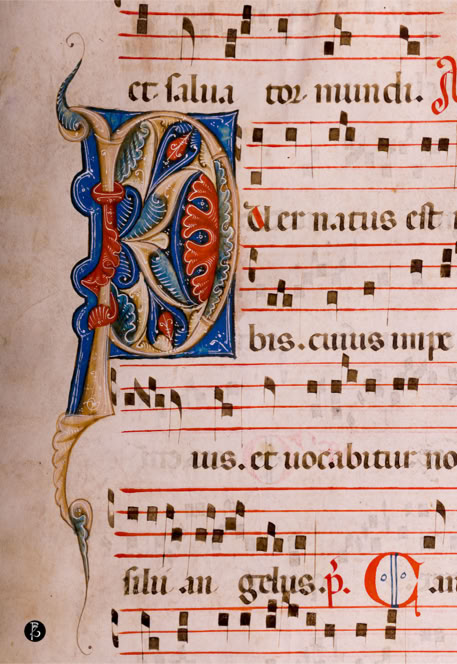 et salua tor mundi.
P uer natus est
bis. cuius impe
ius. et uocabitur no
silii an gelus. p. C an